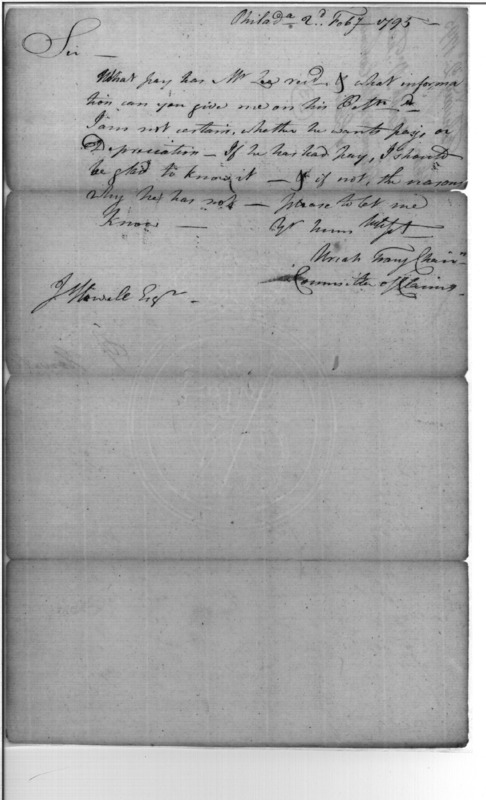 Philada 2d Feby 1795 —
Sir —
What pay has Mr Lee recd & what informa
tion can you give me on his Petn
I am not certain, whether he wants pay, or
Depreciation — If he has had pay, I should
be glad to know it — & if not, the reasons
why he has not — please to let me
know — Yr Humb Servt
Uriah Tracy Chairn
Committee of Claims
J Howell Esqr —